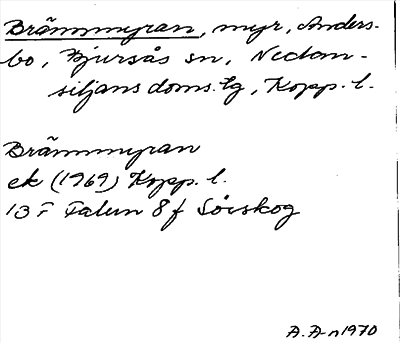 Brämmyran, myr, Anders-
bo, Bjursås sn, Nedan-
siljans doms.lg, Kopp. l.
Brämmyran
ek (1969) Kopp. l.
13 F Falun 8f Sörskog
A. A-n 1970